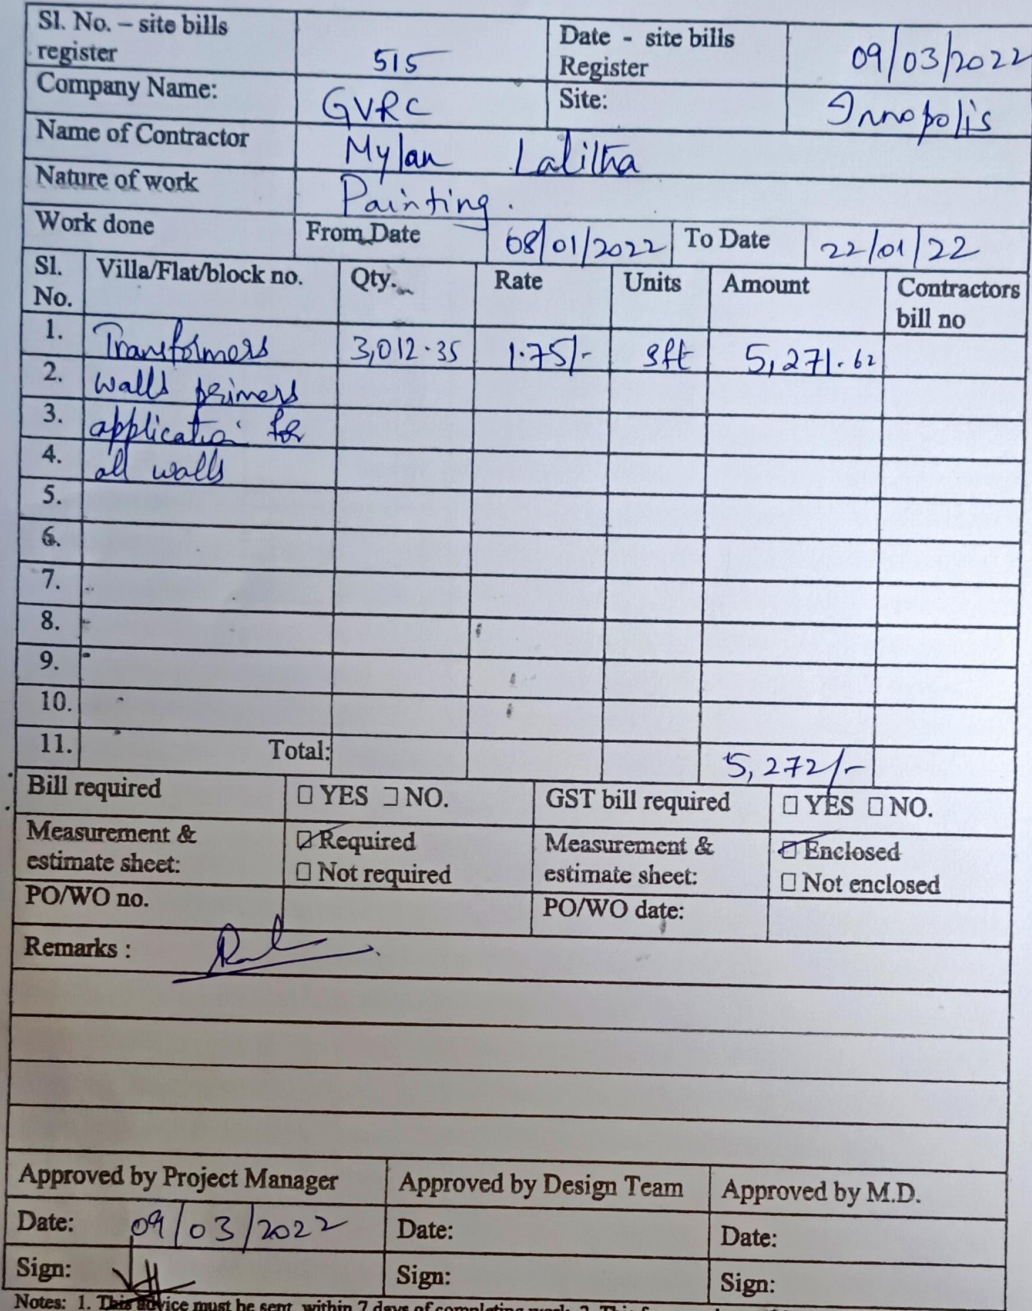 Sl. No. – site bills register 515 Date - site bills Register 09/03/2022
Company Name: GVRC Site: Innopolis
Name of Contractor Mylan Lalitha
Nature of work Painting.
Work done From Date 08/01/2022 To Date 22/01/22
Sl. No. Villa/Flat/block no. Qty. Rate Units Amount Contractors bill no
1. Transformers 3,012.35 1.75/- sft 5,271.62
2. walls primers
3. application for
4. all walls
5.
6.
7.
8.
9.
10.
11. Total: 5,272/-
Bill required □ YES □ NO. GST bill required □ YES □ NO.
Measurement & estimate sheet: ☑ Required □ Not required Measurement & estimate sheet: ☑ Enclosed □ Not enclosed
PO/WO no. PO/WO date:
Remarks :
Approved by Project Manager Approved by Design Team Approved by M.D.
Date: 09/03/2022 Date: Date:
Sign: Sign: Sign:
Notes: 1. This advice must be sent within 7 days of completing work. 2. This